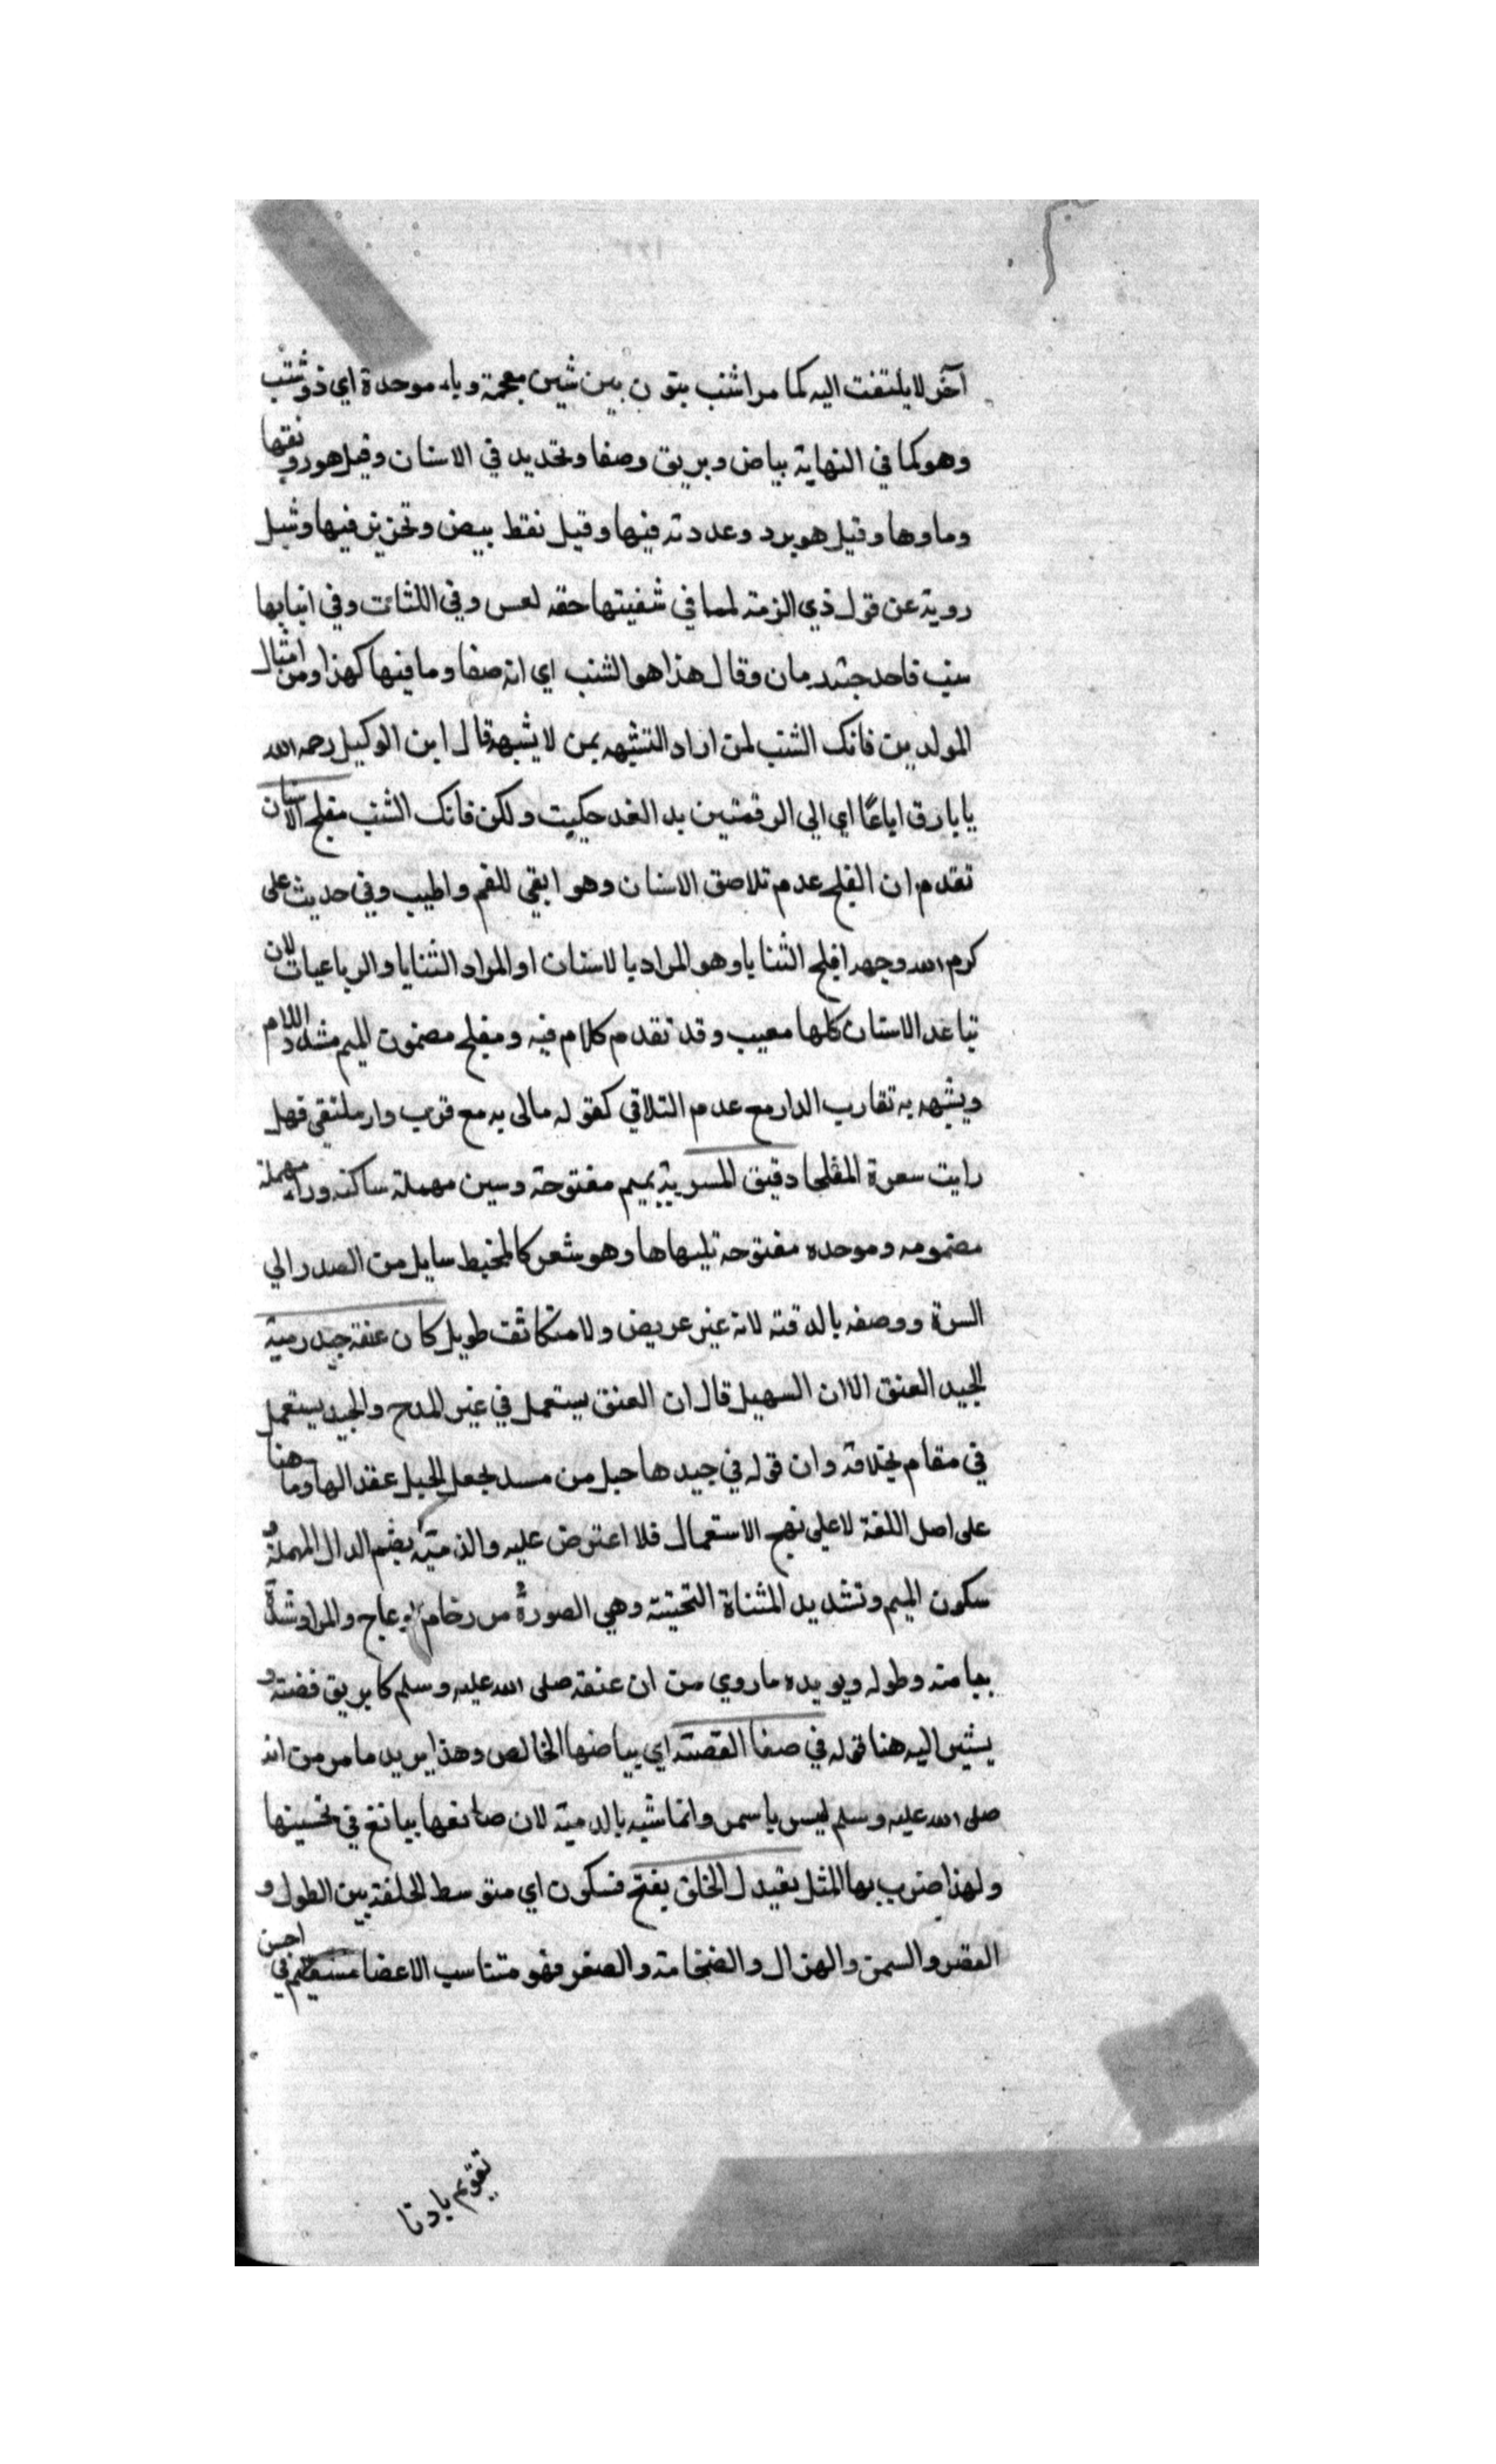 آخر لا يلتفت اليه كما مر اشنب بنون بين شين معجمة وباء موحدة اي ذو شنب
وهو كما في النهاية بياض وبريق وصفا وتحديد في الاسنان وقيل هو رونقها
وماوها وقيل هو برد وعدوته فيها وقيل نقط بيض وتحزيز فيها وسُيل
روية عن قول ذي الرمة لميا في شفيتها حقه لعس وفي اللثات وفي انيابها
شنب فاخذ رمان وقال هذا هو الشنب اي انه صفا وما فيها كهذا ومن امثال
المولدين فاتك الشنب لمن اراد التشبه بمن لا يشبهه قال ابن الوكيل رحمه الله
يا بارق اي الي الرقمتين بدا لقد حكيت ولكن فاتك الشنب مفلج الاسنان
تقدم ان الفلج عدم تلاصق الاسنان وهو ابقي للفم واطيب وفي حديث علي
كرم الله وجهه افلج الثنايا وهو المراد بالاسنان او المراد الثنايا والرباعيات لان
تباعد الاسنان كلها معيب وقد تقدم كلام فيه ومفلج مضموت الميم مشدد اللام
ويشبه به تقارب الدار مع عدم التلاقي كقوله مالي به مع قرب دار ملتقي فهل
رايت سعرة المفلجا دقيق المسربة بميم مفتوحة وسين مهملة ساكنه وراء مهملة
مضمومه وموحده مفتوحة تليها ها وهو شعر كالخيط سايل من الصدر الي
السرة ووصفه بالدقة لانه غير عريض ولا متكاثف طويل كان عنقه جيد دمية
الجيد العنق الا ان السهيل قال ان العنق يستعمل في غير المدح والجيد يستعمل
في مقام بخلافه وان قوله في جيدها حبل من مسد بجعل الحبل عقدا لها وما هنا
على اصل اللغة لا على نهج الاستعمال فلا اعترض عليه والدمية بضم الدال المهملة و
سكون الميم وتشديد المثناة التحتية وهي الصورة من رخام او عاج والمراد شدة
بياضه وطوله ويويده ما روي من ان عنقه صلى الله عليه وسلم كابريق فضة و
يشير اليه هنا قوله في صفا الفضة اي بياضها الخالص وهذا يريد ما مر من انه
صلى الله عليه وسلم ليس باسمر وانما شبه بالدمية لان صانعها يبالغ في تحسينها
ولهذا ضرب بها المثل بعيدل الخلق بفتح فسكون اي متوسط الخلقة بين الطول و
القصر والسمن والهزال والضخامة والصغر فهو متناسب الاعضا مستقيم في احسن
تقويم بادنا